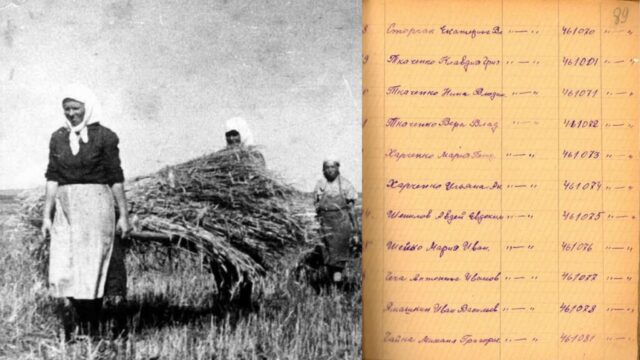 89
8 Сторчак Екатерина Вл " — " 461070 " — "
9 Ткаченко Клавдия Григ " — " 461001 " — "
0 Ткаченко Нина " — " 461071 " — "
1 Ткаченко Вера Влад " — " 461072 " — "
Харченко Мария " — " 461073 " — "
Харченко Ульяна Ак " — " 461074 " — "
4. Шепилов Авдей Евдоким " — " 461075 " — "
5 Шейко Мария Иван. " — " 461076 " — "
Антонина Иванов " — " 461077 " — "
Иван Васильев " — " 461078 " — "
Михаил Григорьев " — " 461081 " — "